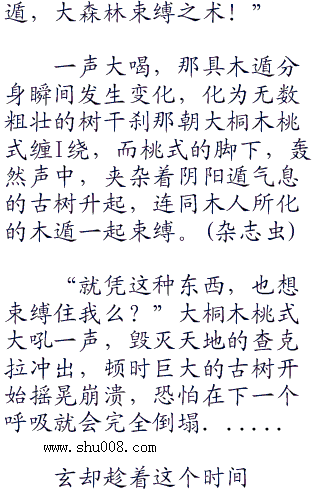 遁，大森林束缚之术！”
一声大喝，那具木遁分
身瞬间发生变化，化为无数
粗壮的树干刹那朝大桐木桃
式缠I绕，而桃式的脚下，轰
然声中，夹杂着阴阳遁气息
的古树升起，连同木人所化
的木遁一起束缚。(杂志虫)
“就凭这种东西，也想
束缚住我么？”大桐木桃式
大吼一声，毁灭天地的查克
拉冲出，顿时巨大的古树开
始摇晃崩溃，恐怕在下一个
呼吸就会完全倒塌．．．．．．
www.shu008.com
玄却趁着这个时间